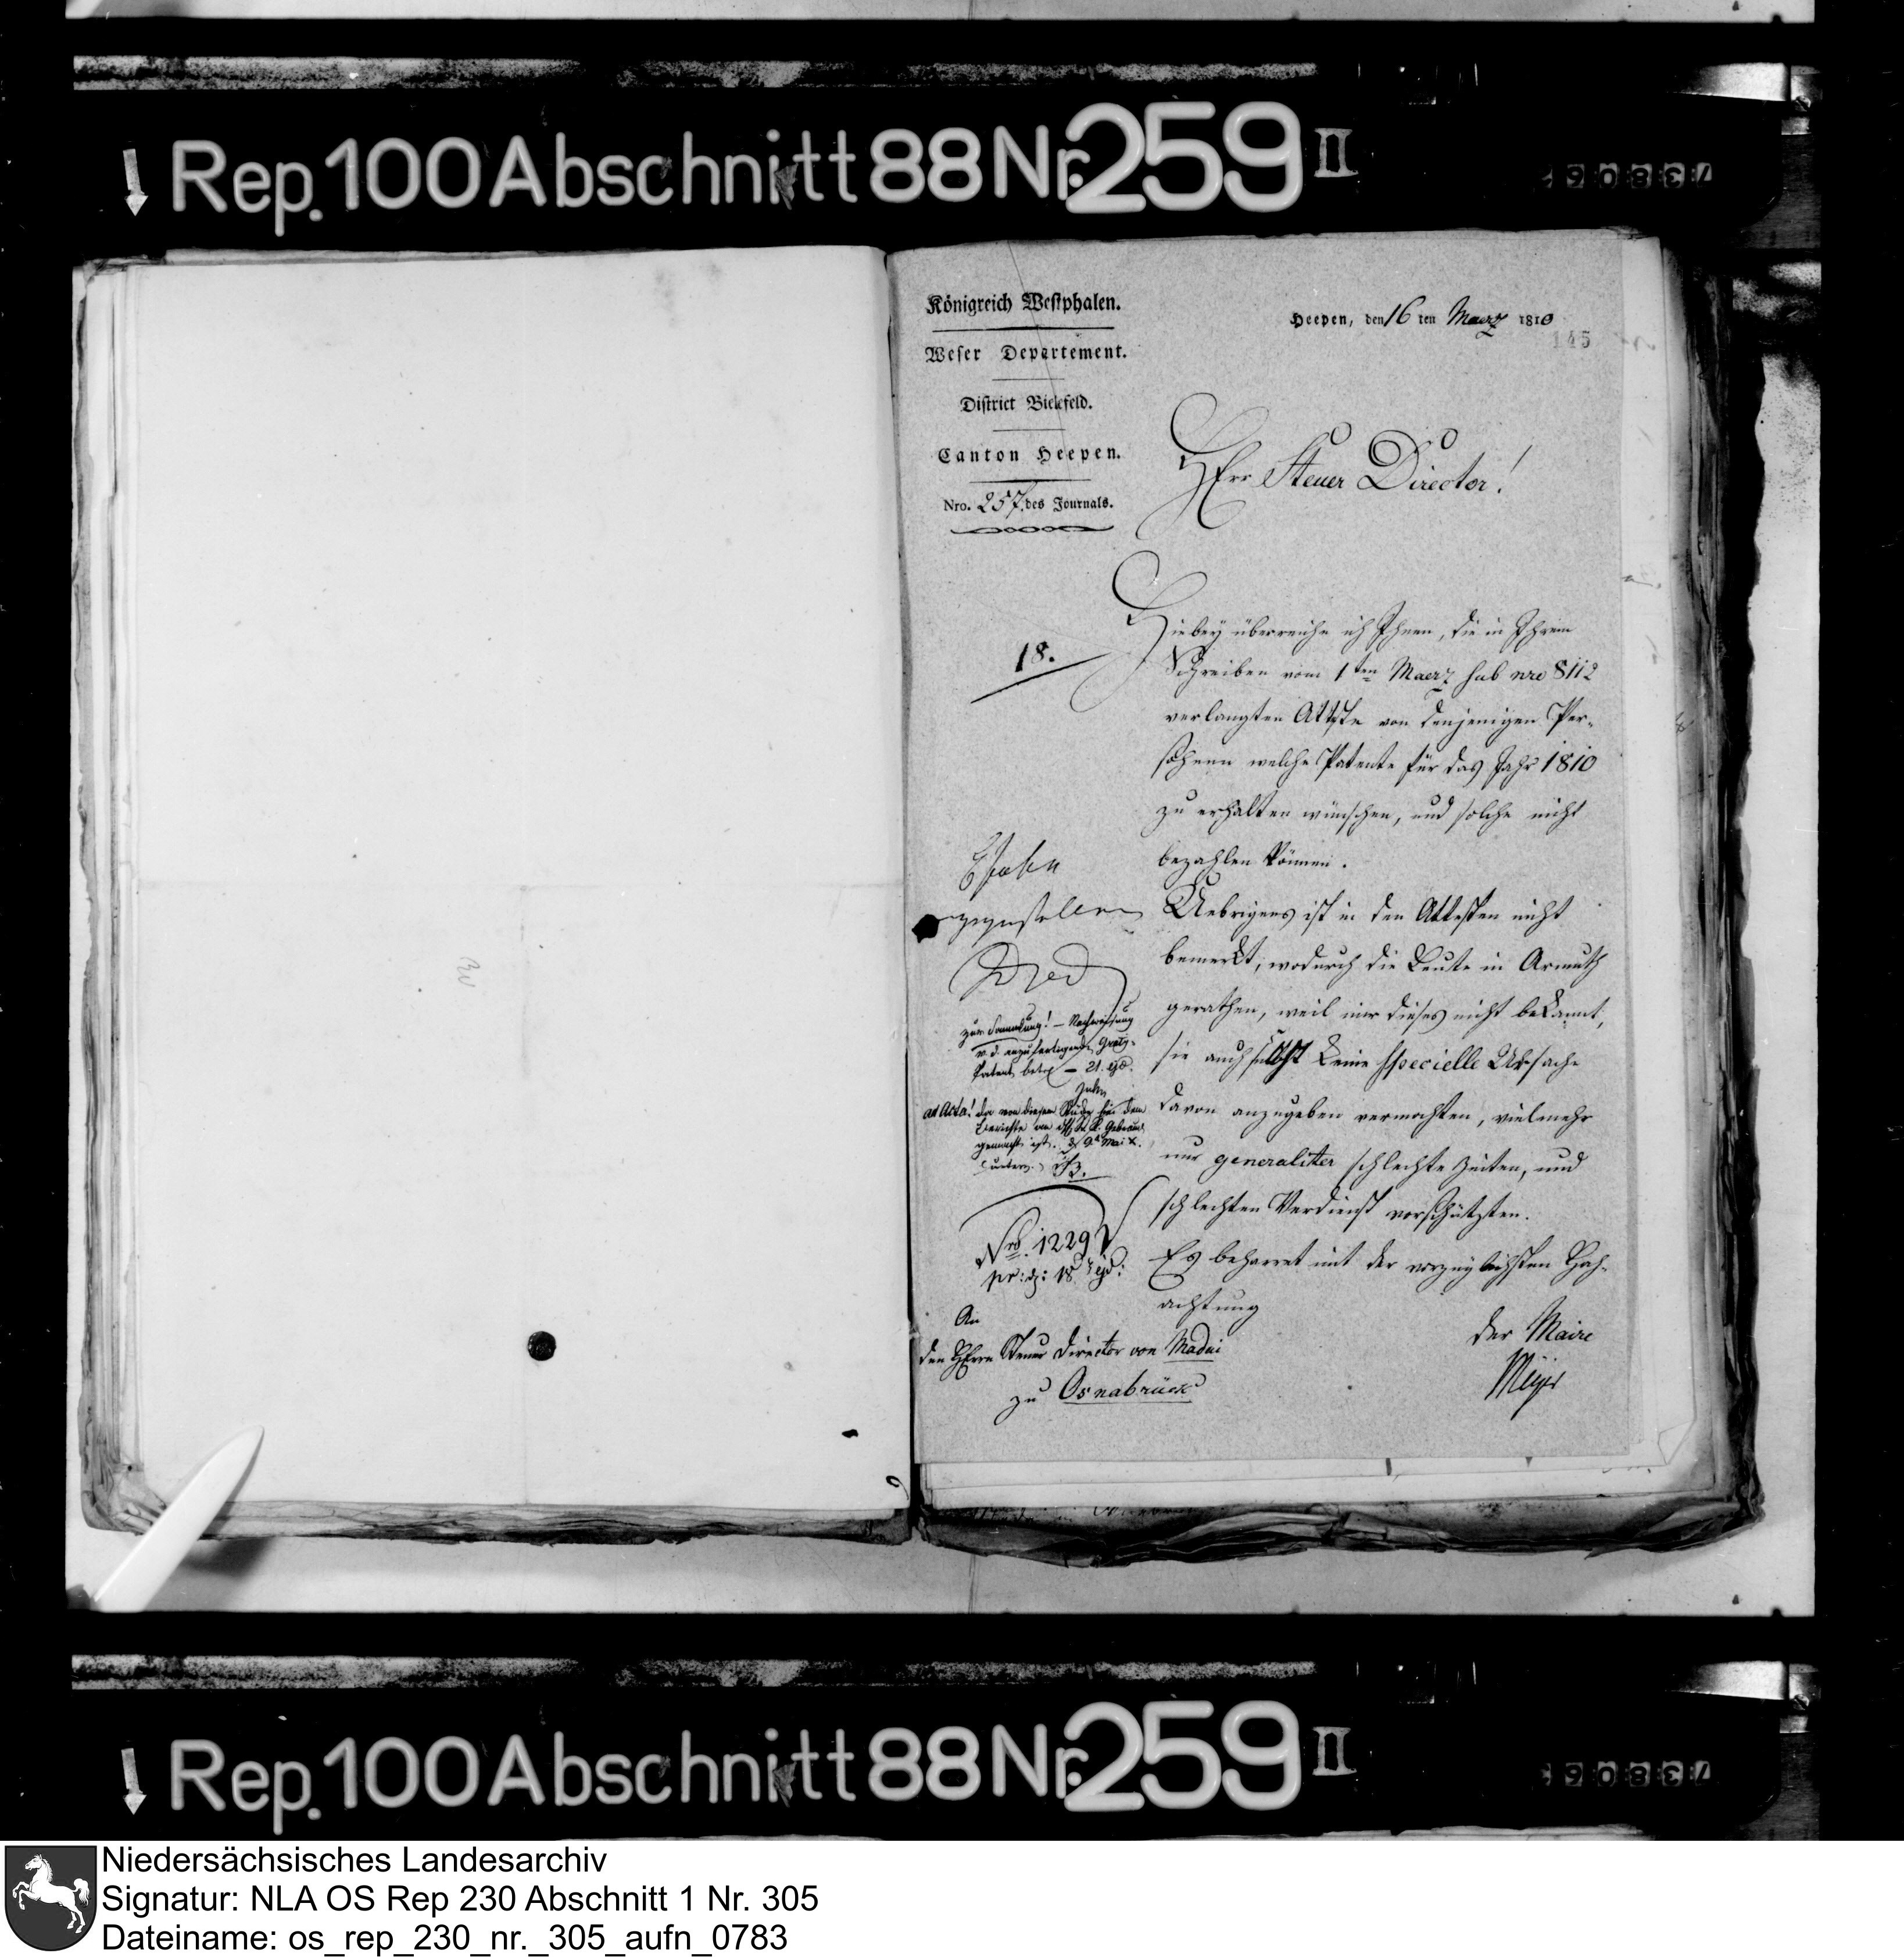 Rep. 100 Abschnitt 88 Nr. 259 II
Königreich Westphalen.
Weser Departement.
District Bielefeld.
Canton Heepen.
Nro. 257. des Journals.
Heepen, den 16 ten Maerz 1810
145
HErr Steuer Director!
18.
Hiebey überreiche ich Ihnen, die in Ihrem
Schreiben vom 1ten Maerz sub nro 8112
verlangten Atteste von denjenigen Per-
sohnen welche Patente für das Jahr 1810
zu erhalten wünschen, und solche nicht
bezahlen können.
Uebrigens ist in den Attesten nicht
bemerkt, wodurch die Leute in Armuth
gerathen, weil mir dieses nicht bekannt,
sie auch selbst keine specielle Ursache
davon anzugeben vermochten, vielmehr
nur generaliter schlechte Zeiten, und
schlechten Verdienst vorschützten.
Es beharret mit der vorzüglichsten Hoch-
achtung
der Maire
Meyer
zur Sammlung! – Nachweisung
v. d. anzufertigende Gratis-
Patent betr – 21. ejd.
ad Acta! da von diesem Stücke bei dem
Berichte an
gemacht ist. 9t Mai
Nro. 1229
pr: d: 18 ejd:
An
den HErrn Steuer Director von Madai
zu Osnabrück
Rep. 100 Abschnitt 88 Nr. 259 II
Niedersächsisches Landesarchiv
Signatur: NLA OS Rep 230 Abschnitt 1 Nr. 305
Dateiname: os_rep_230_nr._305_aufn_0783